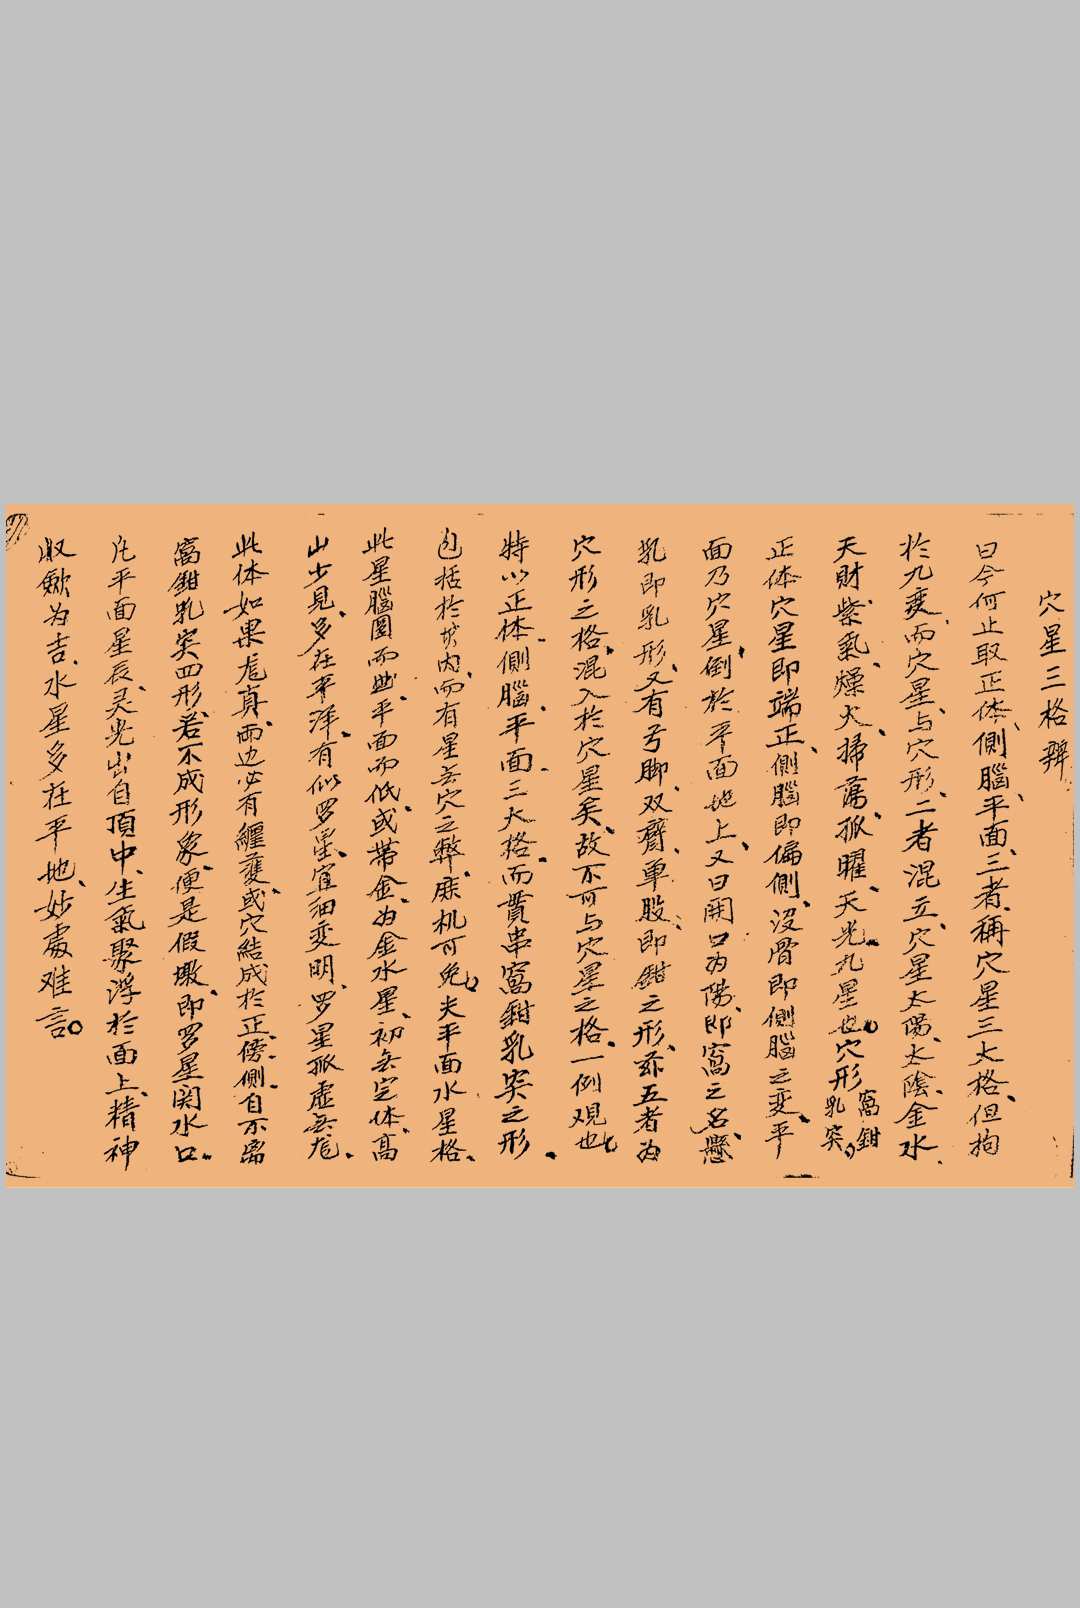 穴星三格辨
曰今何止取正体、側腦、平面、三者、稱穴星三大格、但拘
於九变、而穴星、与穴形、二者混立、穴星太陽、太陰、金水、
天財、紫氣、燥火、掃蕩、孤曜、天光、九星也、穴形窩鉗乳突、
正体穴星即端正、側腦即偏側、沒骨即側腦之变、平
面乃穴星倒於平面地上、又曰開口為陽、即窩之名、懸
乳即乳形、又有弓脚、双臂、单股、即鉗之形、茲五者為
穴形之格、混入於穴星矣、故不可与穴星之格、一例观也、
特以正体、側腦、平面、三大格、而貫串窩鉗乳突之形、
包括於内、而有星无穴之弊、庶机可免、夫平面水星格、
此星腦圓而曲、平面而低、或带金、为金水星、初无定体、高
山少見、多在平洋、有似罗星、宜细变明、罗星孤虛无龙、
此体如果龙真、而边必有纏護、或穴結成於正、傍、側、自不离
窩鉗乳突四形、若不成形象、便是假墩、即罗星関水口、
凡平面星辰、灵光出自頂中、生氣聚浮於面上、精神
收歛为吉、水星多在平地、妙處难言。